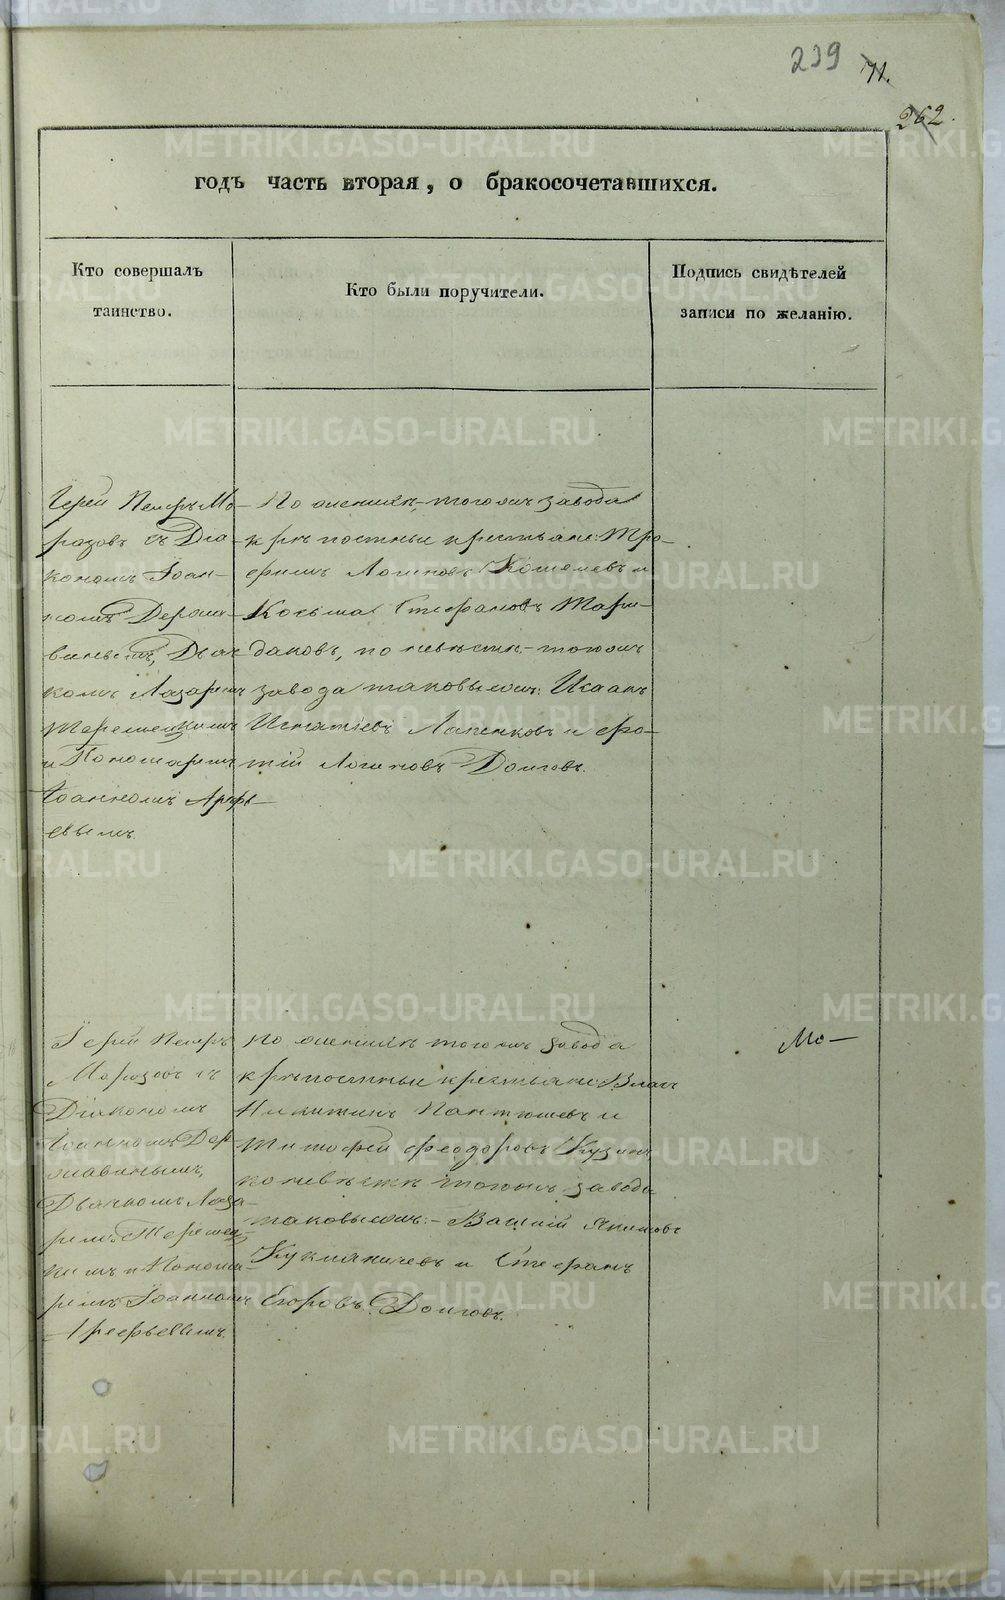 239 71.
262.
годъ часть вторая, о бракосочетавшихся.
Кто совершалъ
таинство.
Кто были поручители.
Подпись свидѣтелей
записи по желанію.
Іерей Петръ Мо-
розовъ съ Діа-
кономъ Іоан-
номъ Держа-
винымъ, Дьяч
комъ Лазаремъ
и Пономаремъ
Іоанномъ Арефь-
евымъ.
По женихѣ, тогожъ завода
крѣпостные крестьяне: Тро-
фимъ Логиновъ и
Косьма Стефановъ
даковъ, по невѣстѣ тогожъ
завода таковыежъ: Исаакъ
Игнатіевъ и Фо-
тій Логиновъ Долговъ.
Іерей Петръ
Морозовъ съ
Діакономъ
Іоанномъ Дер
жавинымъ,
Дьячкомъ Лаза-
ремъ
кимъ и Понома-
ремъ Іоанномъ
Арефьевымъ.
По женихѣ тогожъ завода
крѣпостные крестьяне: Власъ
Никитинъ Пантюшевъ и
Тимофей Феодоровъ Кузинъ,
по невѣстѣ тогожъ завода
таковыежъ: Василій Якимовъ
и Стефанъ
Егоровъ Долговъ.
Мо-
METRIKI.GASO-URAL.RU